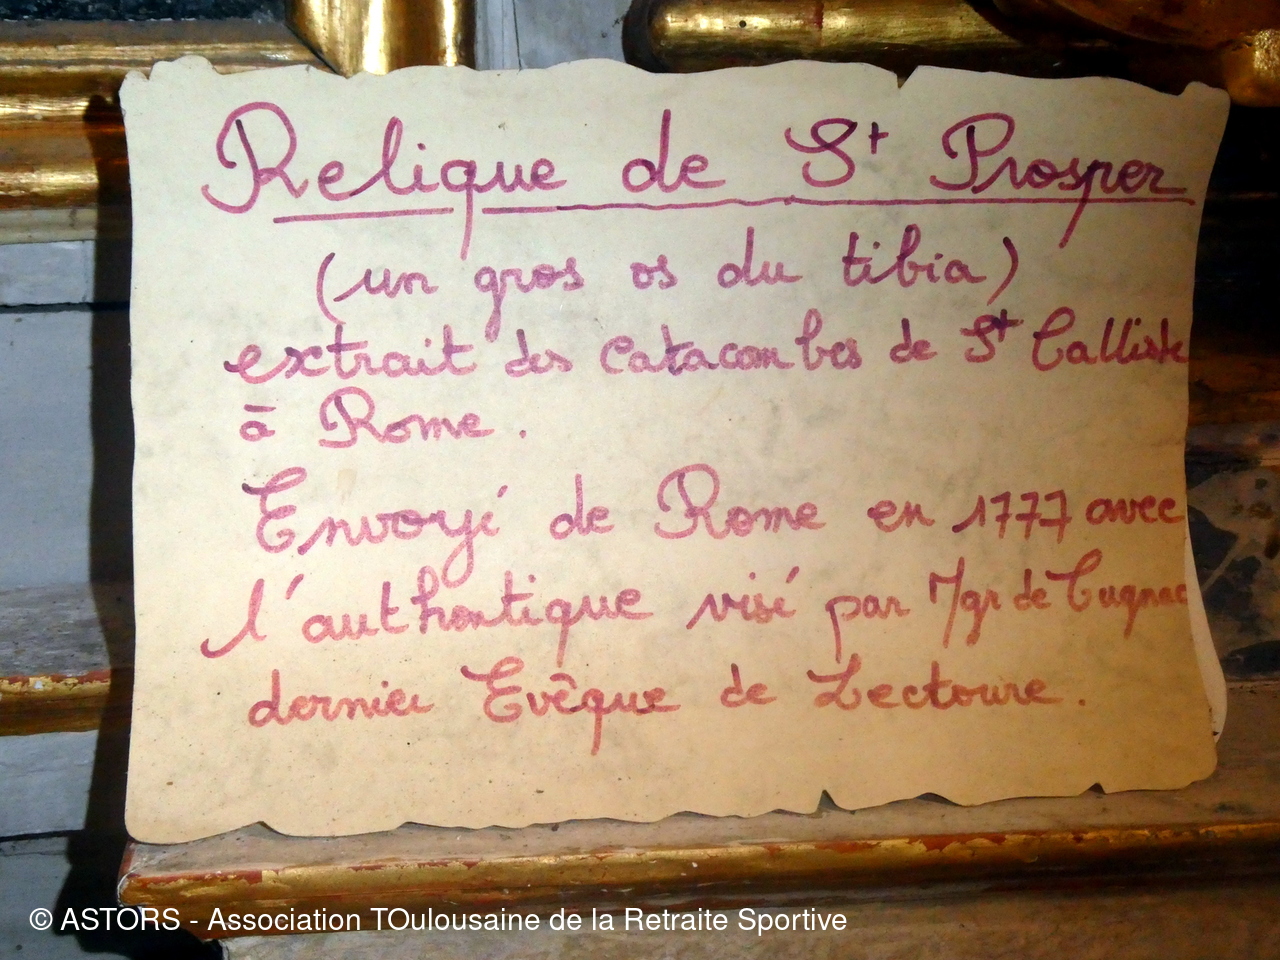 Relique de St Prosper
(un gros os du tibia)
extrait des Catacombes de St Calliste
à Rome.
Envoyé de Rome en 1777 avec
l'authentique visé par Mgr de Cugnac
dernier Evêque de Lectoure.
© ASTORS - Association TOulousaine de la Retraite Sportive